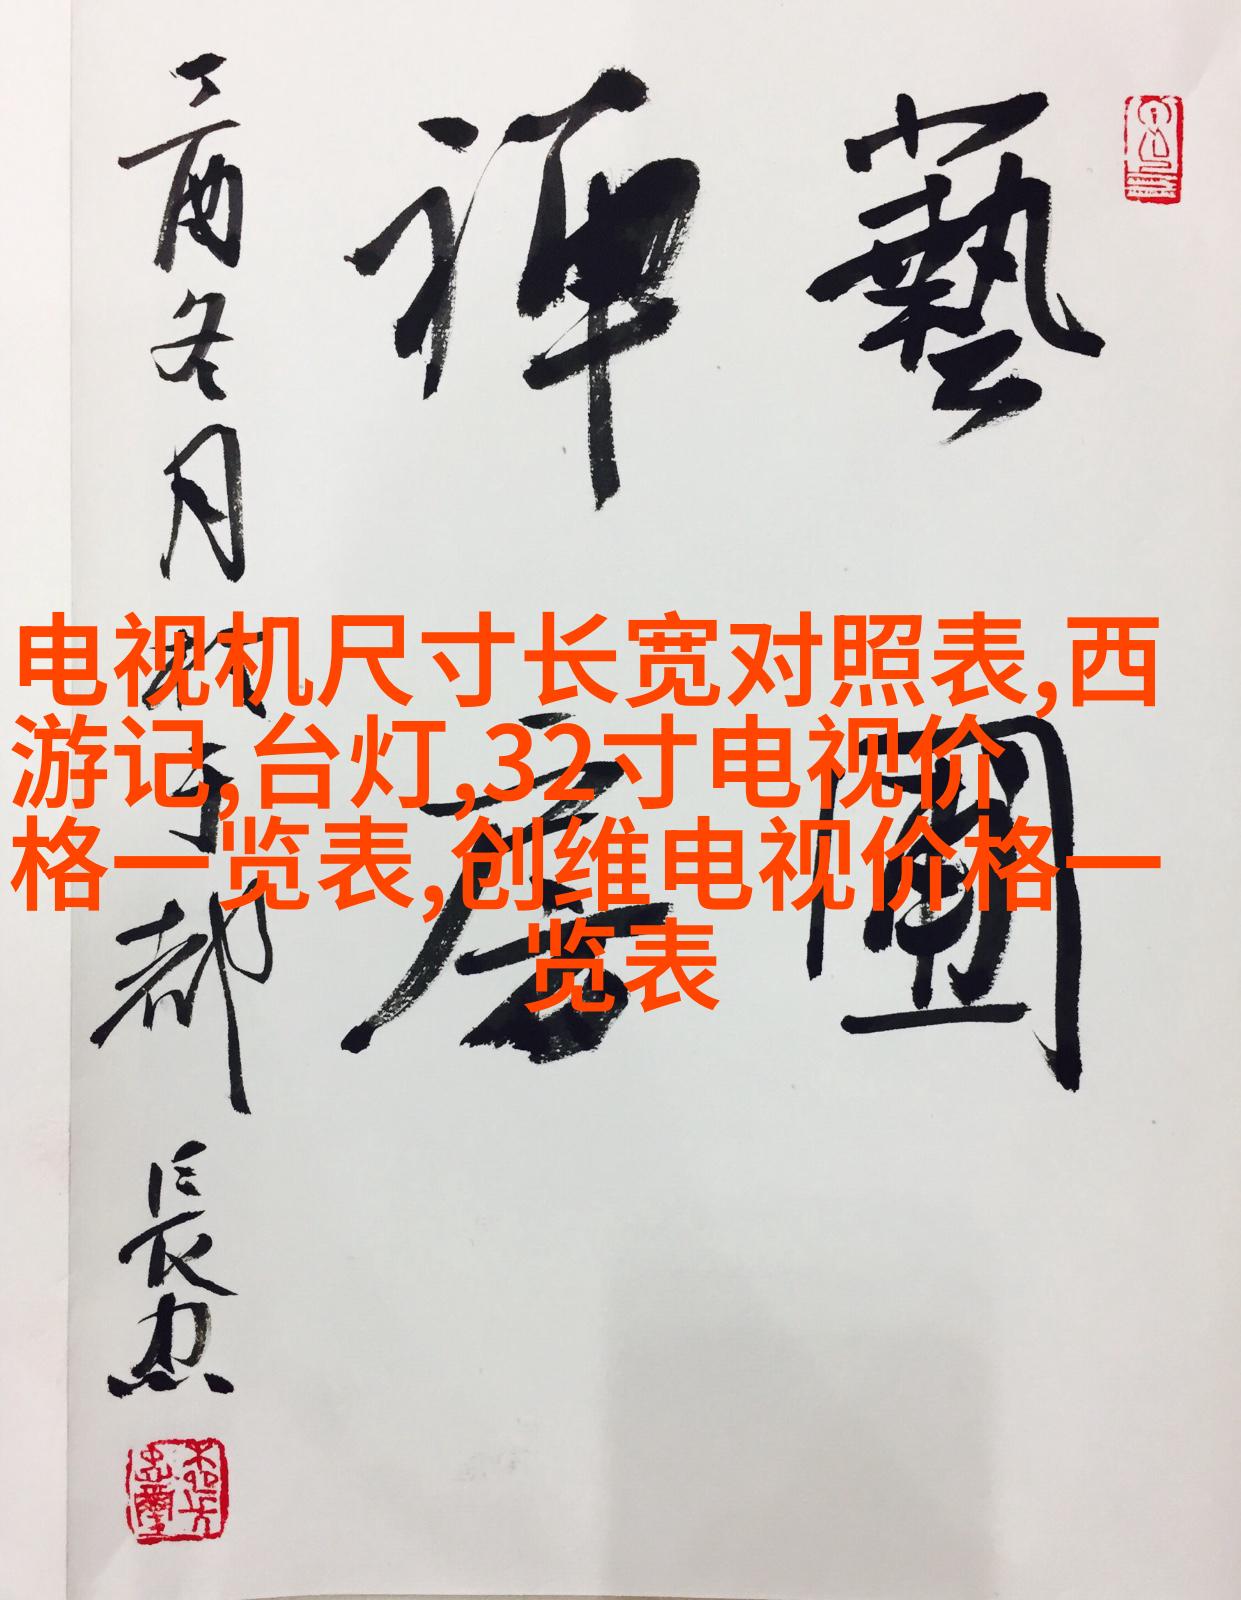 藝圃
禪房
丁酉冬月於京都
長忠
电视机尺寸长宽对照表,西
游记,台灯,32寸电视价
格一览表,创维电视价格一
览表